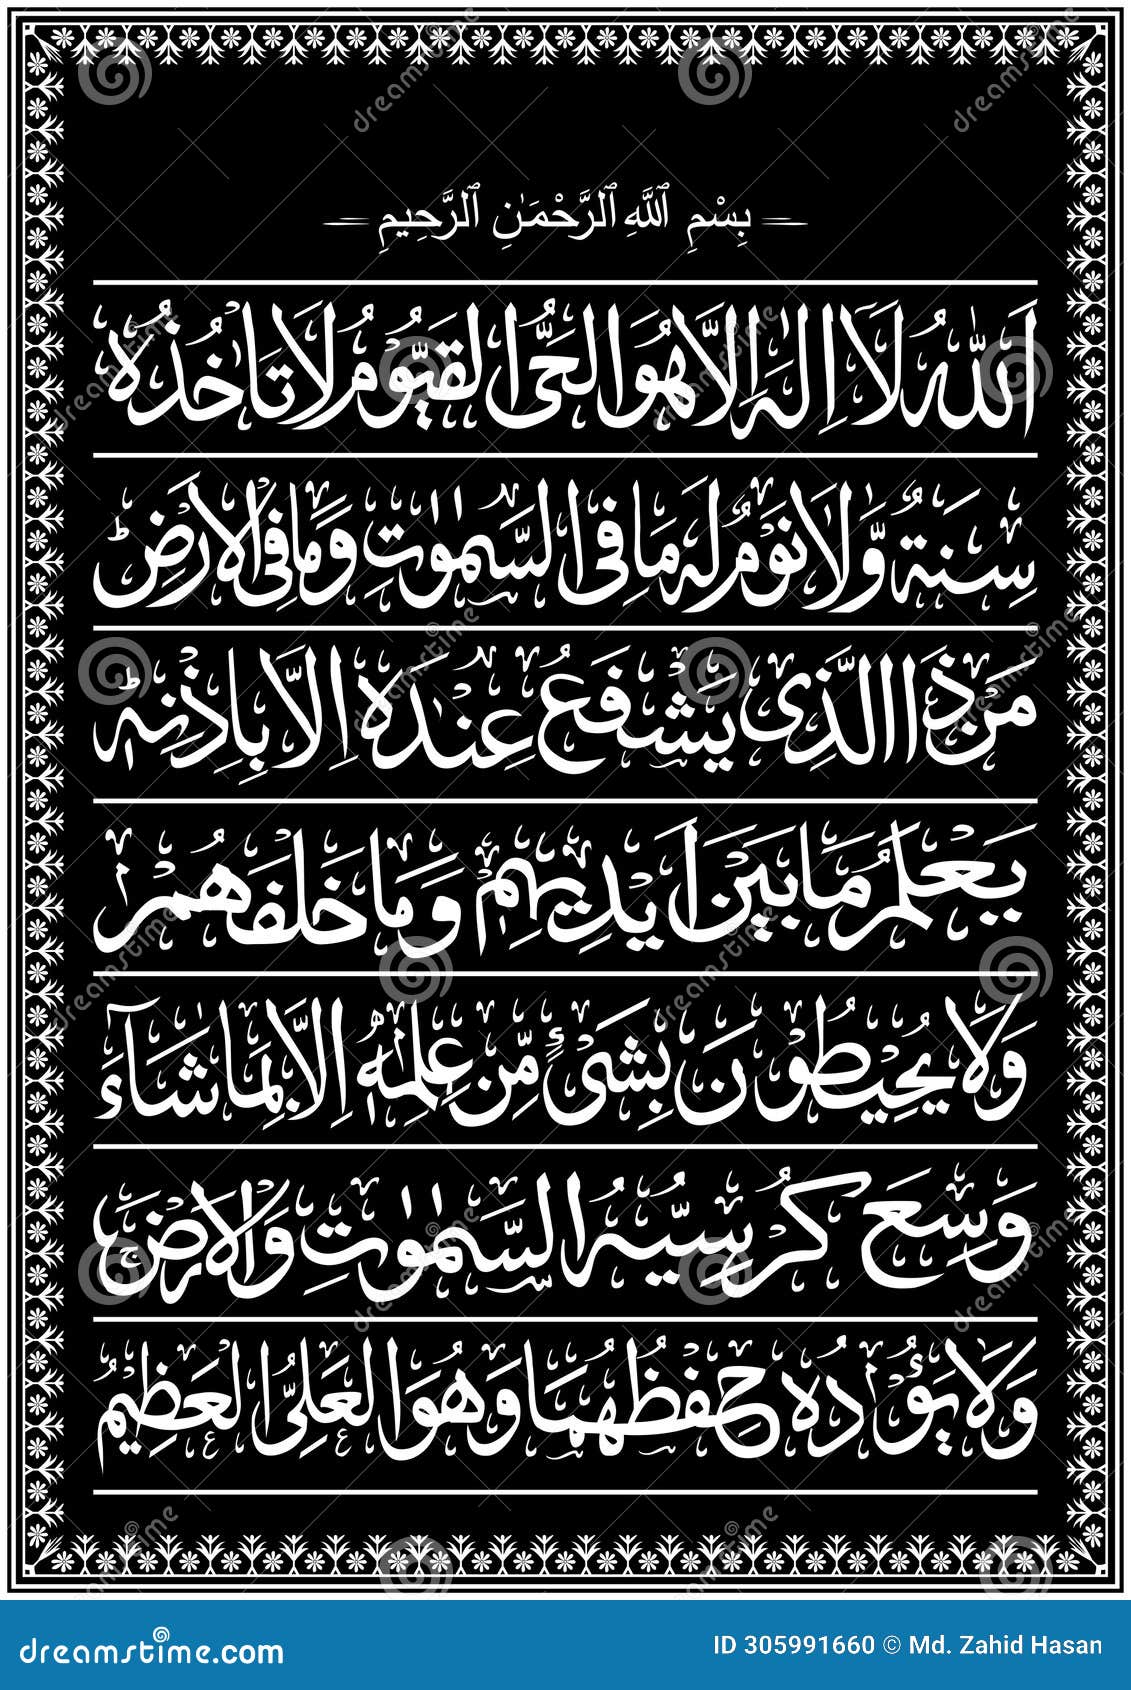 بِسْمِ ٱللَّهِ ٱلرَّحْمَـٰنِ ٱلرَّحِيمِ
اَللّٰهُ لَاۤ اِلٰهَ اِلَّا هُوَ الْحَىُّ الْقَيُّوْمُ لَا تَاْخُذُهٗ
سِنَةٌ وَّلَا نَوْمٌ لَهٗ مَا فِى السَّمٰوٰتِ وَمَا فِى الْاَرْضِ ؕ
مَنْ ذَا الَّذِىْ يَشْفَعُ عِنْدَهٗۤ اِلَّا بِاِذْنِهٖ ؕ
يَعْلَمُ مَا بَيْنَ اَيْدِيْهِمْ وَمَا خَلْفَهُمْ ۚ
وَلَا يُحِيْطُوْنَ بِشَىْءٍ مِّنْ عِلْمِهٖۤ اِلَّا بِمَا شَآءَ ۚ
وَسِعَ كُرْسِيُّهُ السَّمٰوٰتِ وَالْاَرْضَ ۚ
وَلَا يَـُٔوْدُهٗ حِفْظُهُمَا وَهُوَ الْعَلِىُّ الْعَظِيْمُ
dreamstime.com ID 305991660 © Md. Zahid Hasan